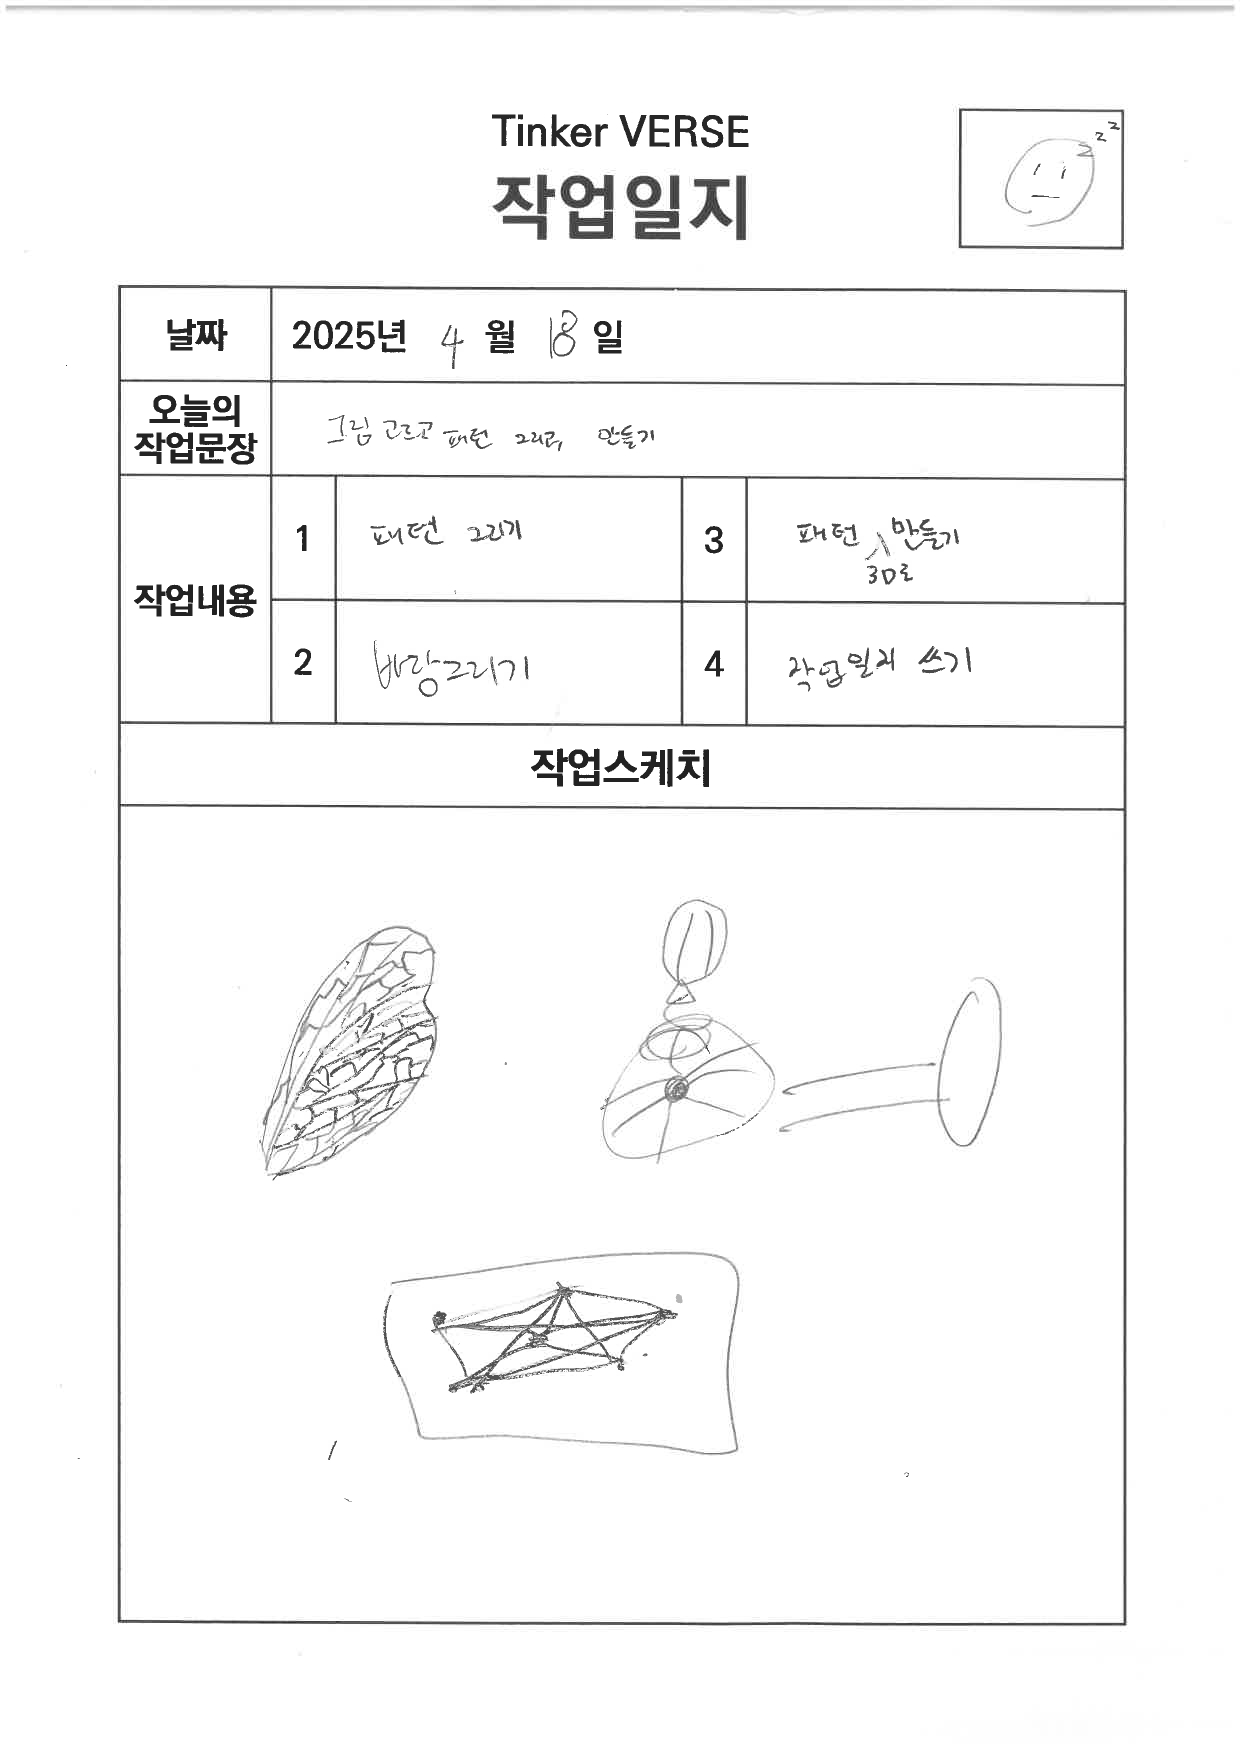 Tinker VERSE
작업일지
z z z
날짜
2025년 4월 18일
오늘의
작업문장
그림 고르고 패턴 그리고, 만들기
작업내용
1
패턴 그리기
3
패턴 만들기
3D로
2
바람그리기
4
작업일지 쓰기
작업스케치